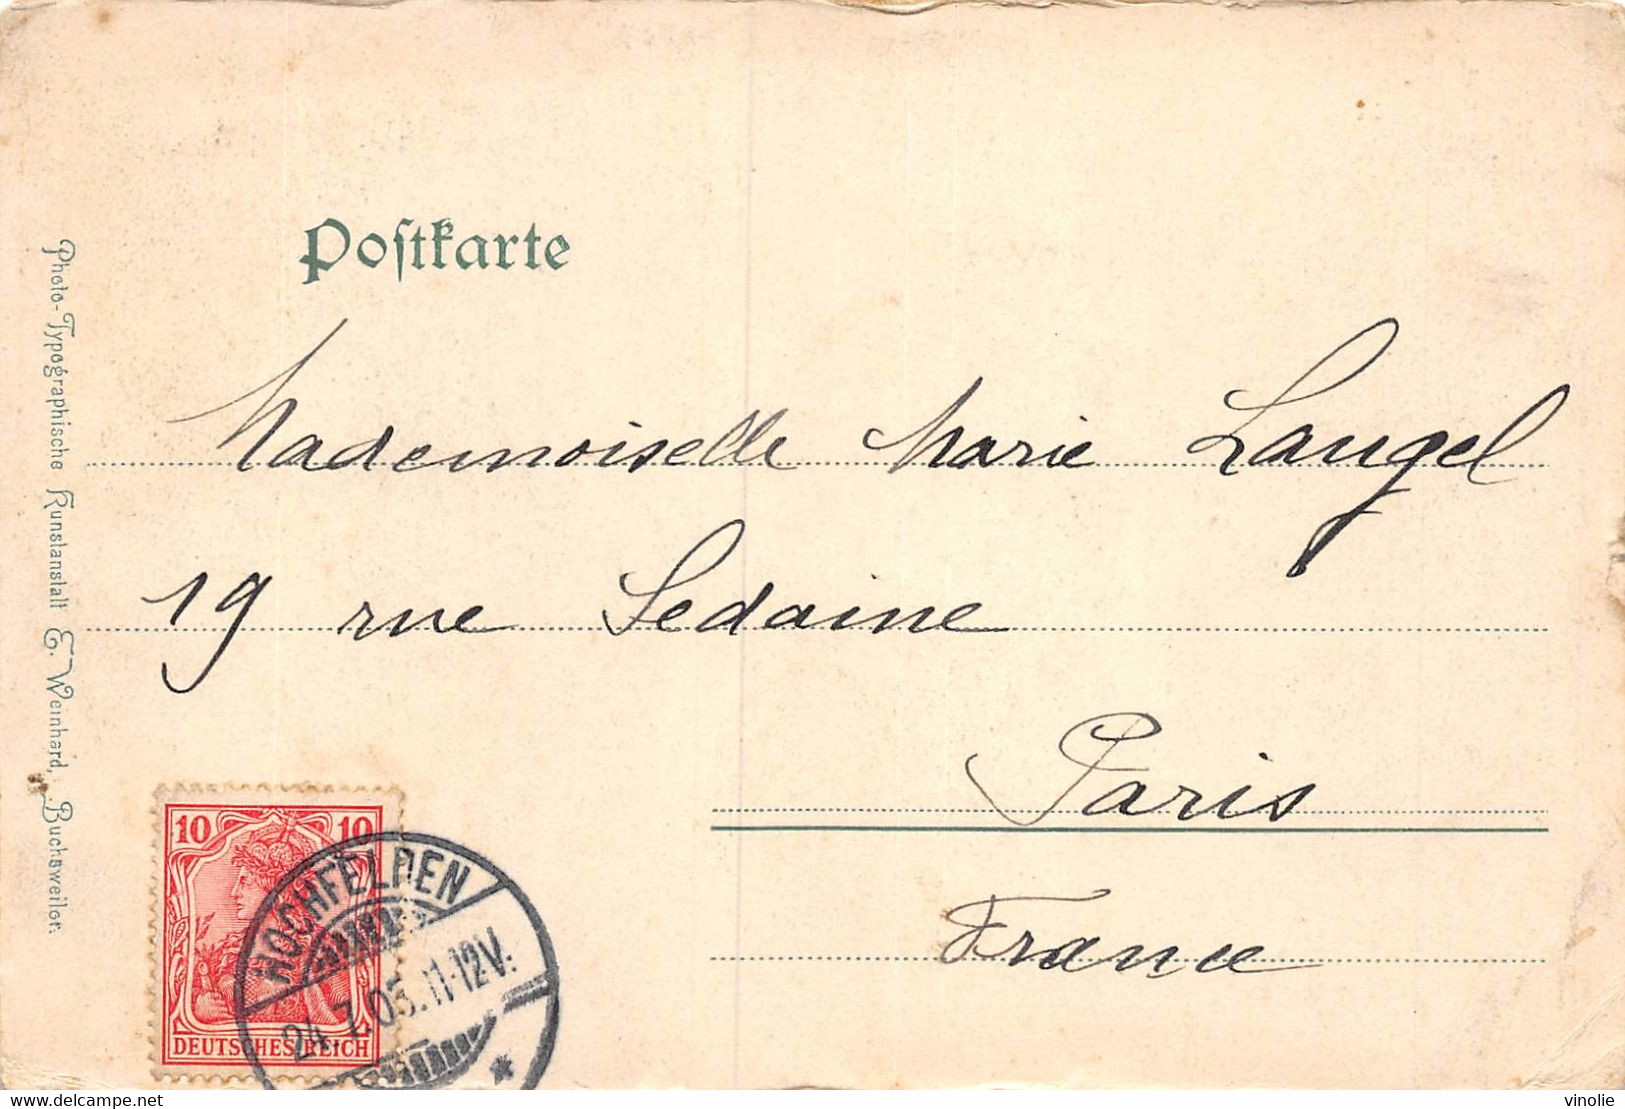 Postkarte
Photo-Typographische Kunstanstalt E. Weinhard, Buchsweiler.
Mademoiselle Marie Laugel
19 rue Sedaine
Paris
France
10 10
DEUTSCHES REICH
HOCHFELDEN
24.7.05.11-12V.
*
www.delcampe.net
vinolie